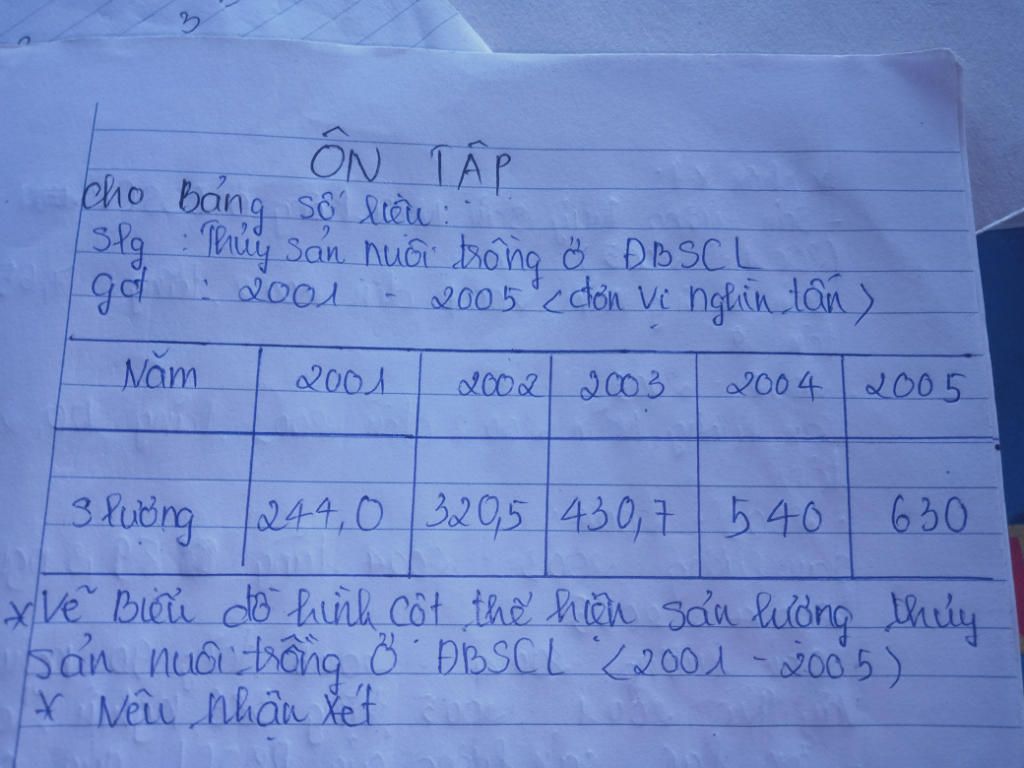 3
ÔN TẬP
Cho Bảng số liệu:
Slg : Thủy sản nuôi trồng ở ĐBSCL
gđ : 2001 - 2005 (đơn vị nghìn tấn)
Năm 2001 2002 2003 2004 2005
S lượng 244,0 320,5 430,7 540 630
* Vẽ Biểu đồ hình cột thể hiện sản lượng thủy
sản nuôi trồng ở ĐBSCL (2001 - 2005)
* Nêu nhận xét